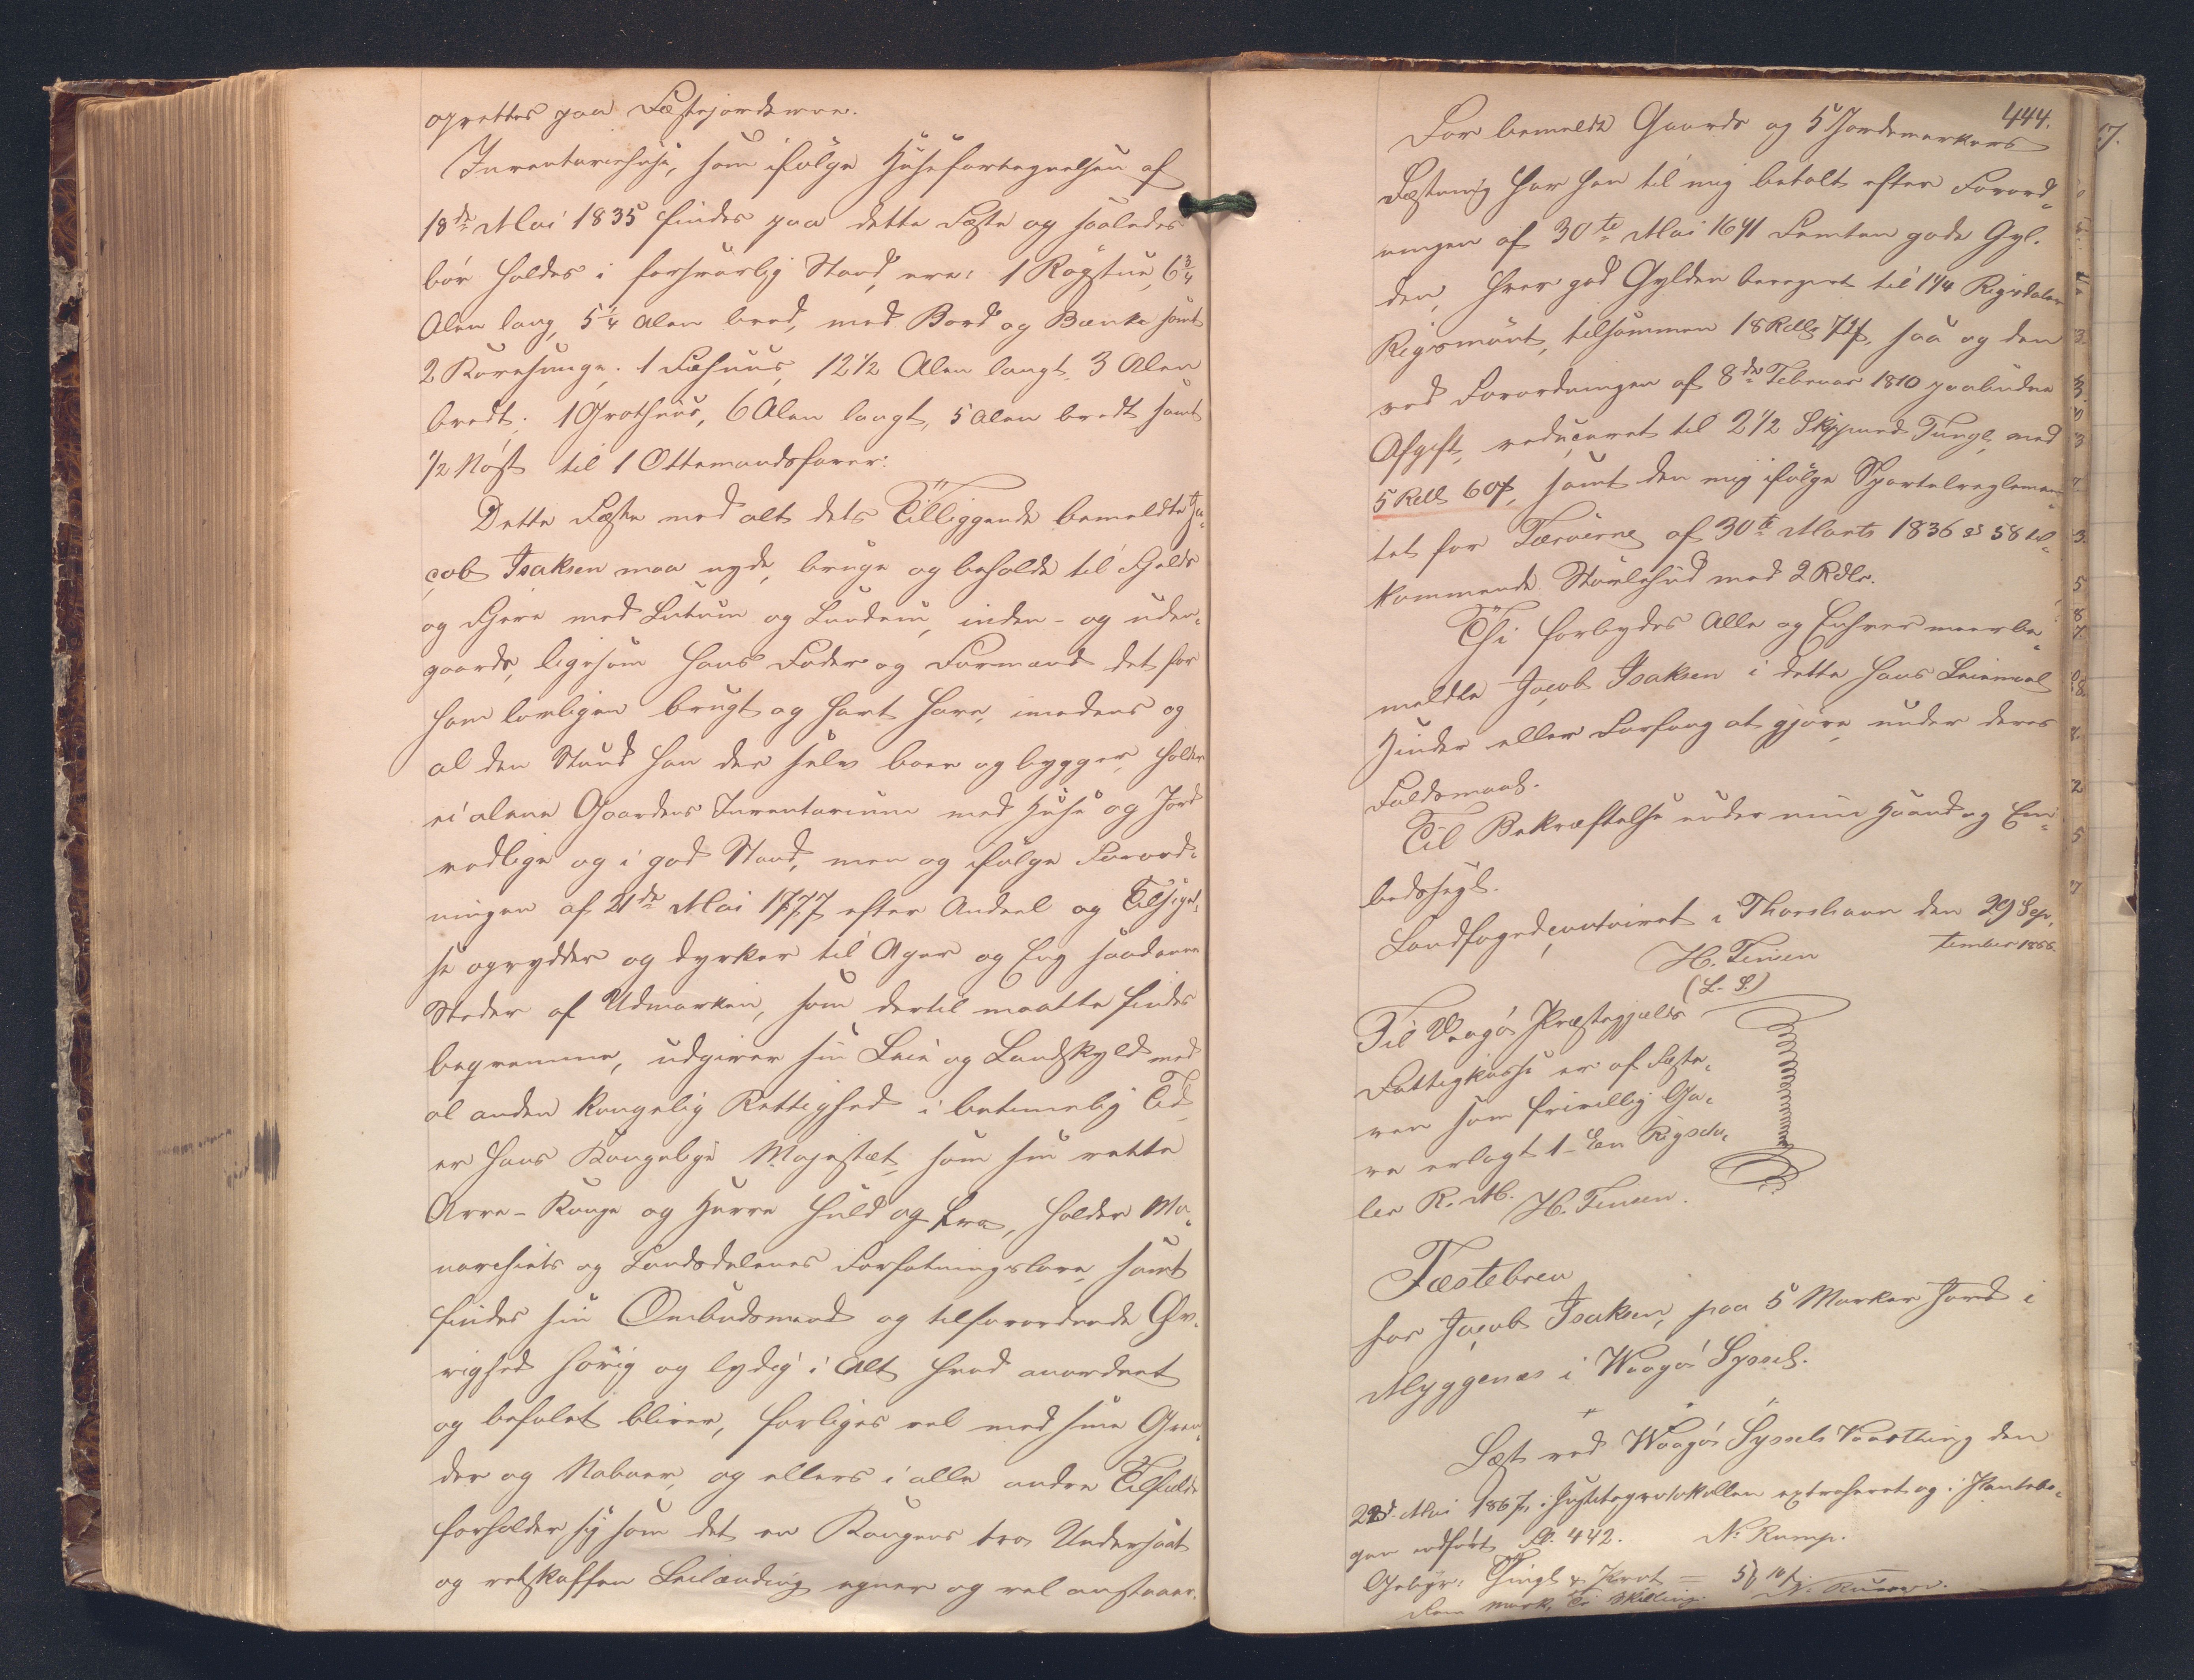 oprettes paa Fæstejorderne.
Inventariehuse, som ifølge Huusefortegnelsen af
18de Mai 1835 findes paa dette Fæste og saaledes
bör holdes i forsvarlig Stand, ere: 1 Røgstue, 6¾
Alen lang, 5¼ Alen bred, med Bord og Bænke samt
2 Roresenge. 1 Fæhuus, 12½ Alen langt, 3 Alen
bredt; 1 Grothuus, 6 Alen langt, 5 Alen bredt samt
½ Nøst til 1 Ottemandsfarer.
Dette Fæste med alt dets Tilliggende bemeldte Ja-
cob Isaksen maa nyde, bruge og beholde til Fjelds
og Fjere med Lutum og Lundum, inden- og uden-
gaards, ligesom hans Fader og Formand det før
ham lovligen brugt og havt have, imedens og
al den Stund han der selv boer og bygger, holder
ei alene Gaardens Inventarium med Huse og Jord
vedlige og i god Stand, men og ifølge Forord-
ningen af 21de Mai 1777 efter Andeel og Tilsigel-
se oprydder og dyrker til Ager og Eng saadanne
Steder af Udmarken, som dertil maatte findes
beqvemme, udgiver sin Leie og Landskyld med
al anden kongelig Rettighed i betimelig Tid,
er Hans Kongelige Majestæt, som sin rette
Arve-Konge og Herre huld og tro, holder Mo-
narchiets og Landsdelenes Forfatningslove, samt
findes sin Ombudsmand og tilforordnede Øv-
righed hørig og lydig i Alt hvad anordnet
og befalet bliver, forliges vel med sine Gran-
der og Naboer, og ellers i alle andre Tilfælde
forholder sig som det en Kongens tro Undersaat
og retskaffen Leilænding egner og vel anstaaer.
444.
For bemeldte Gaards og 5 Jordemarkers
Fæstning har han til mig betalt efter Forord-
ningen af 30te Mai 1691 Femten gode Gyl-
den, hver god Gylden beregnet til 1¼ Rigsdaler
Rigsmønt, tilsammen 18 Rdlr 72 ß, saa og den
ved Forordningen af 8de Februar 1810 paabudne
Afgift, reduceret til 2½ Skippund Tunge, med
5 Rdlr 60 ß, samt den mig ifølge Sportelreglemen-
tet for Færøerne af 30te Marts 1836 § 58 til-
kommende Størlehud med 2 Rdlr.
Thi forbydes Alle og Enhver meerbe-
meldte Jacob Isaksen i dette hans Leiemaal
Hinder eller Forfang at gjøre, under deres
Faldsmaal.
Til Bekræftelse under min Haand og Em-
bedssegl.
Landfogedcontoiret i Thorshavn den 29 Sep-
tember 1866.
H. Tinsen
(L. S.)
Til Vaagø Præstegjælds
Fattigkasse er af Fæste-
ren som frivillig Ga-
ve erlagt 1- Een Rigsda-
ler R. M. H. Tinsen.
Fæstebrev
for Jacob Isaksen, paa 5 Marker Jord i
Myggenæs i Waagø Syssel.
Læst ved Waagø Syssels Vaarthing den
22d. Mai 1867, i Justitsprotokollen extraheret og i Pantebo-
gen indført Fol. 442. N. Rump.
Gebyr: Thingl & Prot = 5 ß 10 ß
Fem Mark, Ti Skilling. N. Rump.